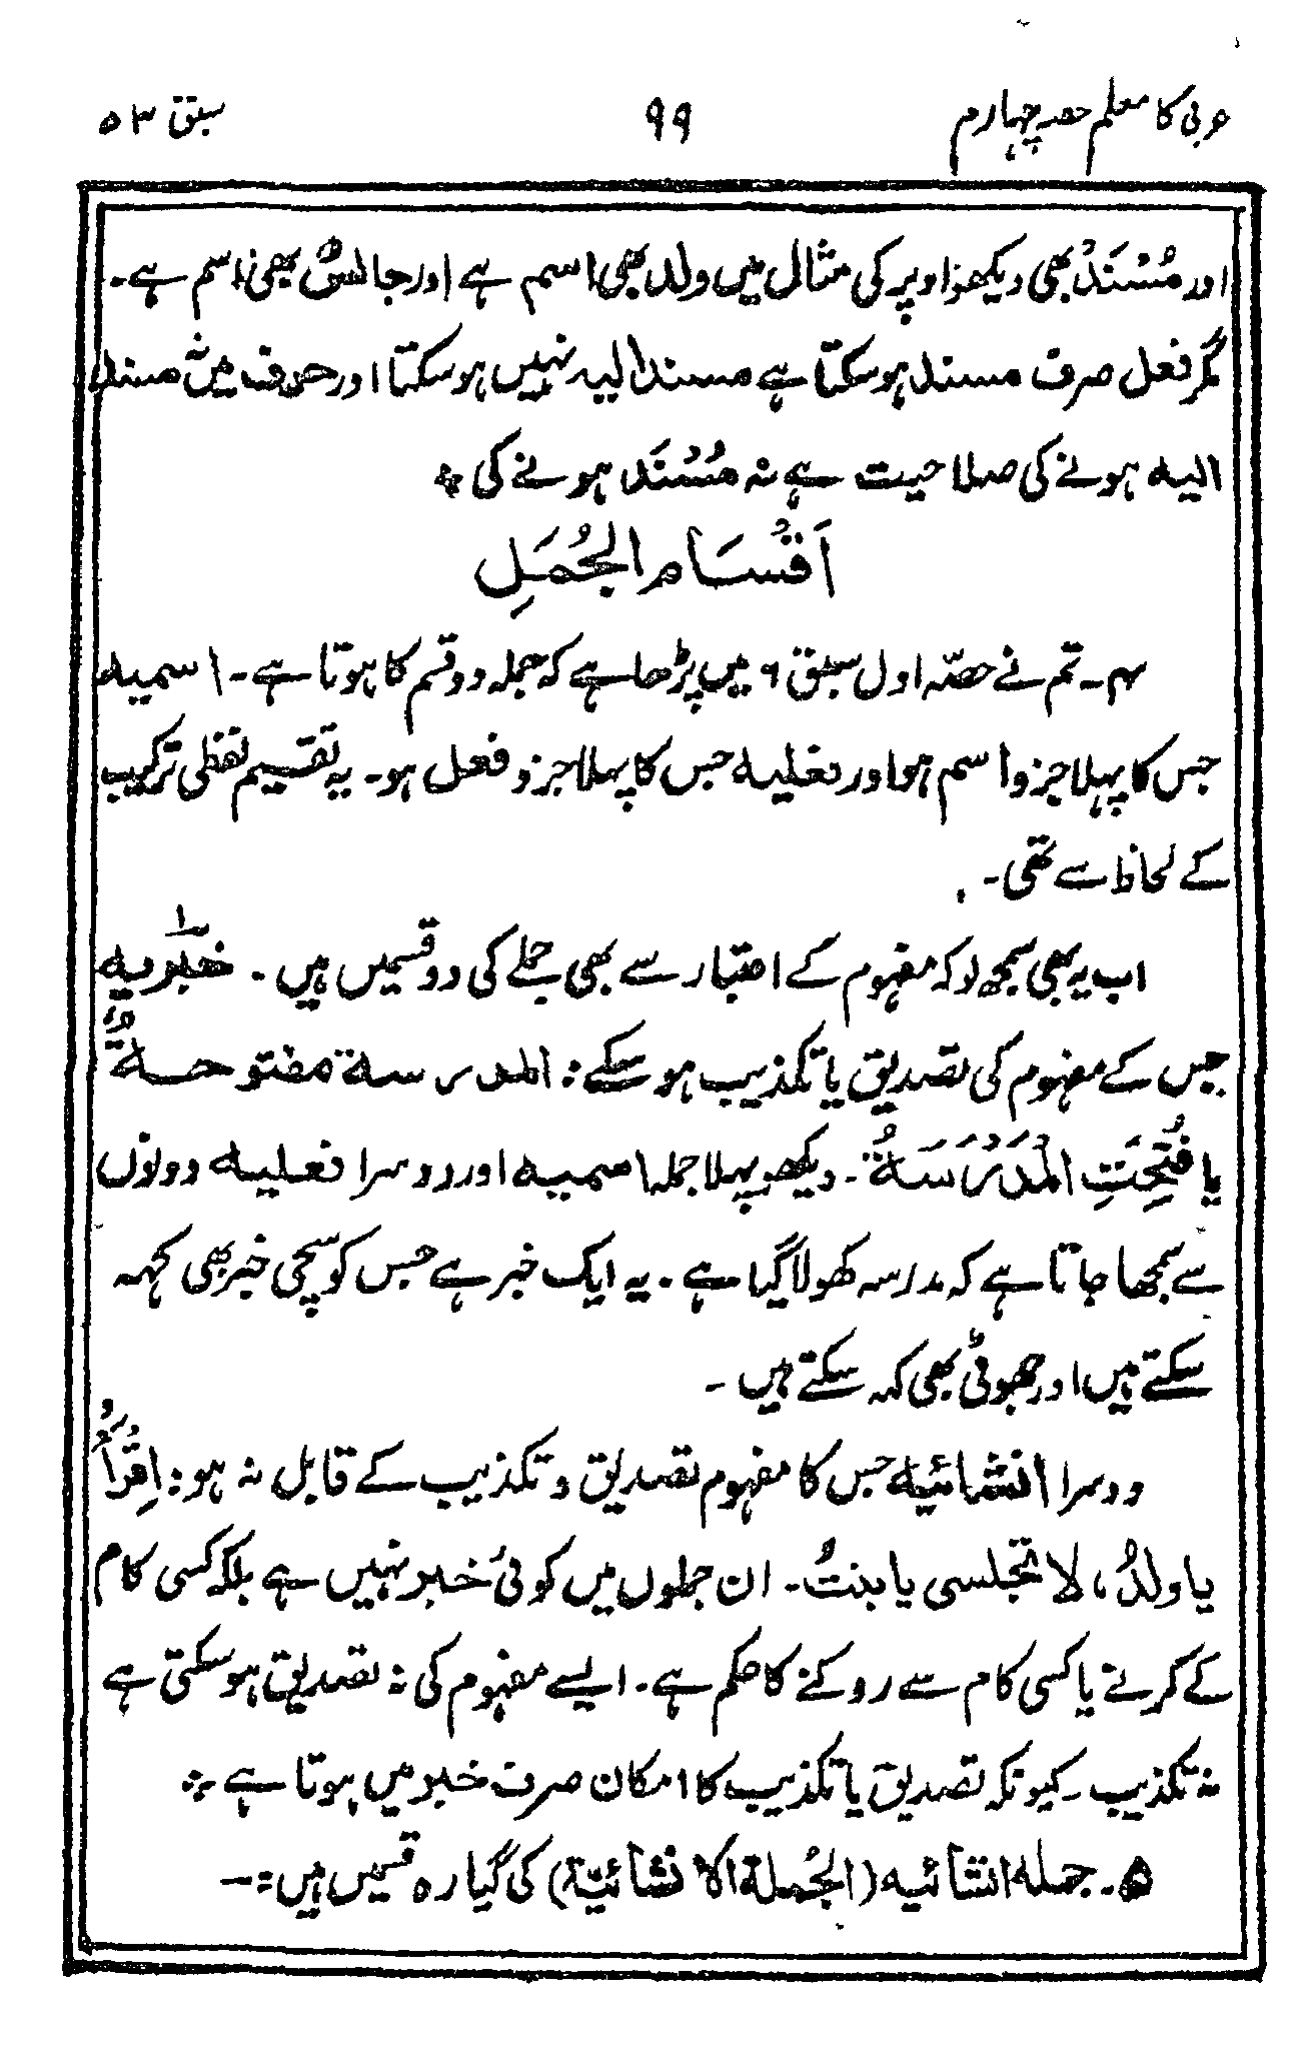 عربی کا معلم حصہ چہارم ۹۹ سبق ۵۳
اور مُسْنَدْ بھی دیکھو اوپر کی مثال میں ولد بھی اسم ہے اور جالسٌ بھی اسم ہے۔
مگر فعل صرف مسند ہوسکتا ہے مسند الیہ نہیں ہوسکتا اور حرف میں نہ مسند
الیہ ہونے کی صلاحیت ہے نہ مُسْنَد ہونے کی ÷
اَقْسَام الجُمَلِ
۴۔ تم نے حصّہ اول سبق ۶ میں پڑھا ہے کہ جملہ دو قسم کا ہوتا ہے۔ اسمیہ
جس کا پہلا جزو اسم ہو اور فعلیہ جس کا پہلا جزو فعل ہو۔ یہ تقسیم لفظی ترکیب
کے لحاظ سے تھی۔
اب یہ بھی سمجھ لو کہ مفہوم کے اعتبار سے بھی جملے کی دو قسمیں ہیں۔ خبریہ
جس کے مفہوم کی تصدیق یا تکذیب ہو سکے: المدرسۃ مفتوحۃٌ
یا فُتِحَتِ المْدَرْسَۃُ۔ دیکھو پہلا جملہ اسمیہ اور دوسرا فعلیہ دونوں
سے سمجھا جاتا ہے کہ مدرسہ کھولا گیا ہے۔ یہ ایک خبر ہے جس کو سچی خبر بھی کہہ
سکتے ہیں اور جھوٹی بھی کہہ سکتے ہیں۔
دوسرا انشائیہ جس کا مفہوم تصدیق و تکذیب کے قابل نہ ہو: اِقْرَأْ
یا ولدُ، لا تجلسی یا بنتُ۔ ان جملوں میں کوئی خبر نہیں ہے بلکہ کسی کام
کے کرنے یا کسی کام سے روکنے کا حکم ہے۔ ایسے مفہوم کی نہ تصدیق ہوسکتی ہے
نہ تکذیب۔ کیونکہ تصدیق یا تکذیب کا امکان صرف خبر میں ہوتا ہے ÷
۵۔ جملہ انشائیہ (الجُملۃ الانشائیّۃ) کی گیارہ قسمیں ہیں:۔